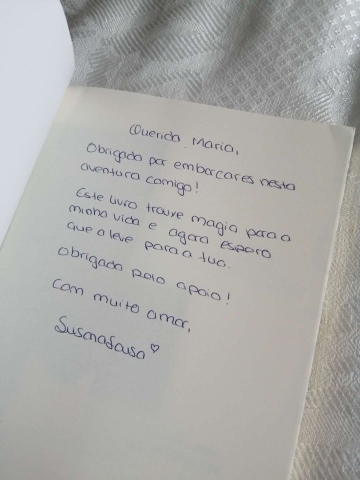 Querida Maria,
Obrigada por embarcares nesta
aventura comigo!
Este livro trouxe magia para a
minha vida e agora espero
que a leve para a tua.
Obrigada pelo apoio!
Com muito amor,
Susana Sousa ♡